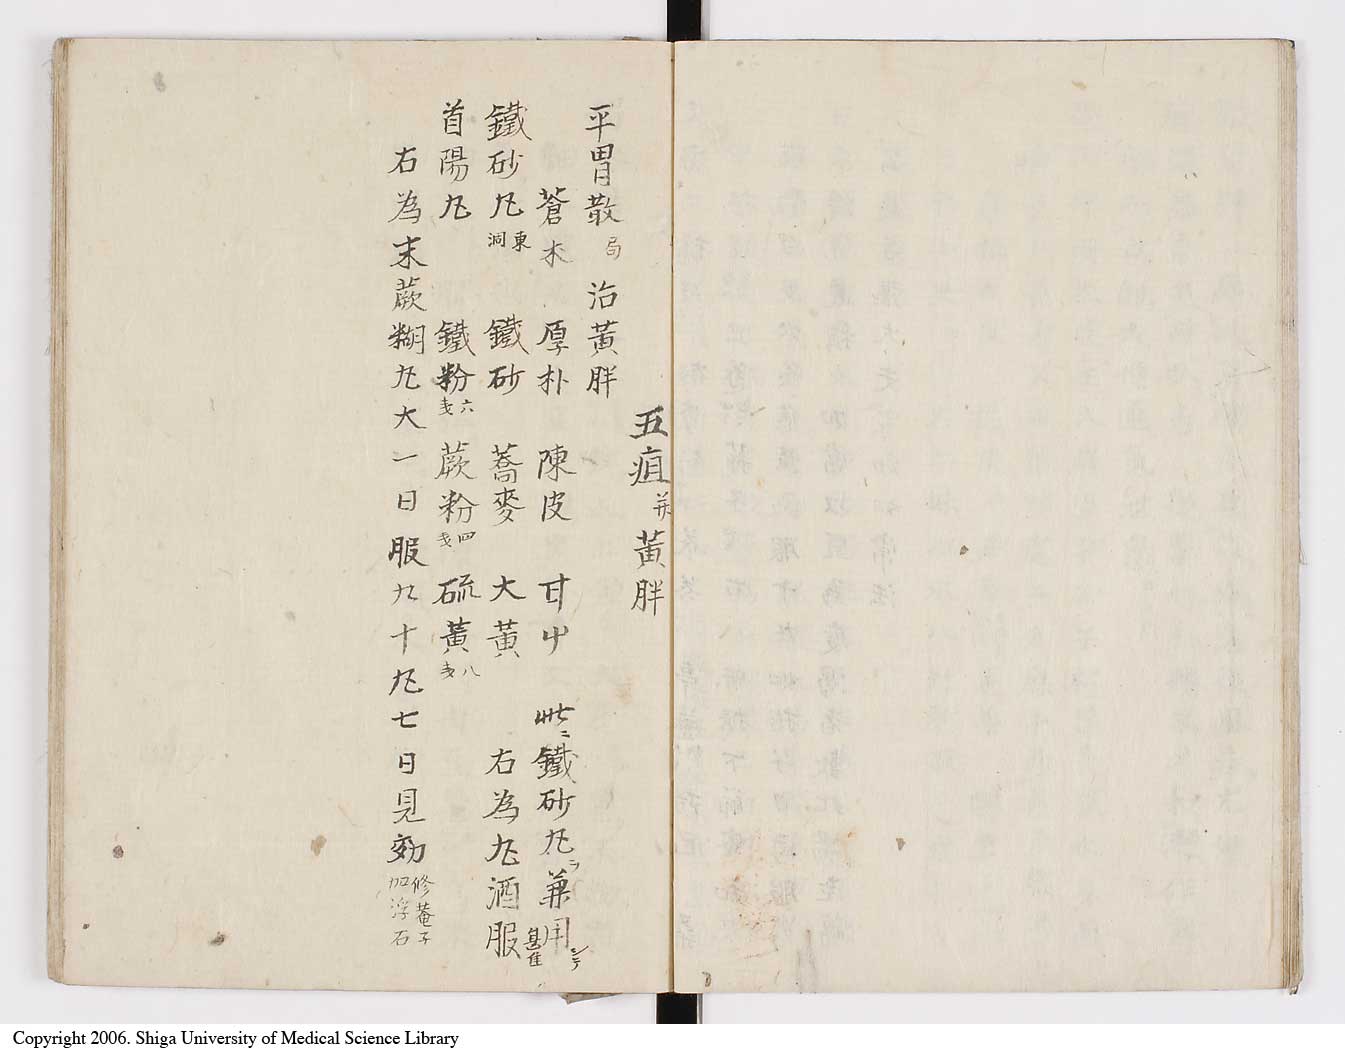 五疸并黃胖
平胃散局 治黃胖
蒼朮 厚朴 陳皮 甘艸 此ニ鐵砂丸ヲ兼用シテ甚佳
鐵砂丸東洞 鐵砂 蕎麥 大黃 右為丸酒服
首陽丸 鐵粉六戔 蕨粉四戔 硫黃八戔
右為末蕨糊丸大一日服九十丸七日見効修菴子加浮石
Copyright 2006. Shiga University of Medical Science Library